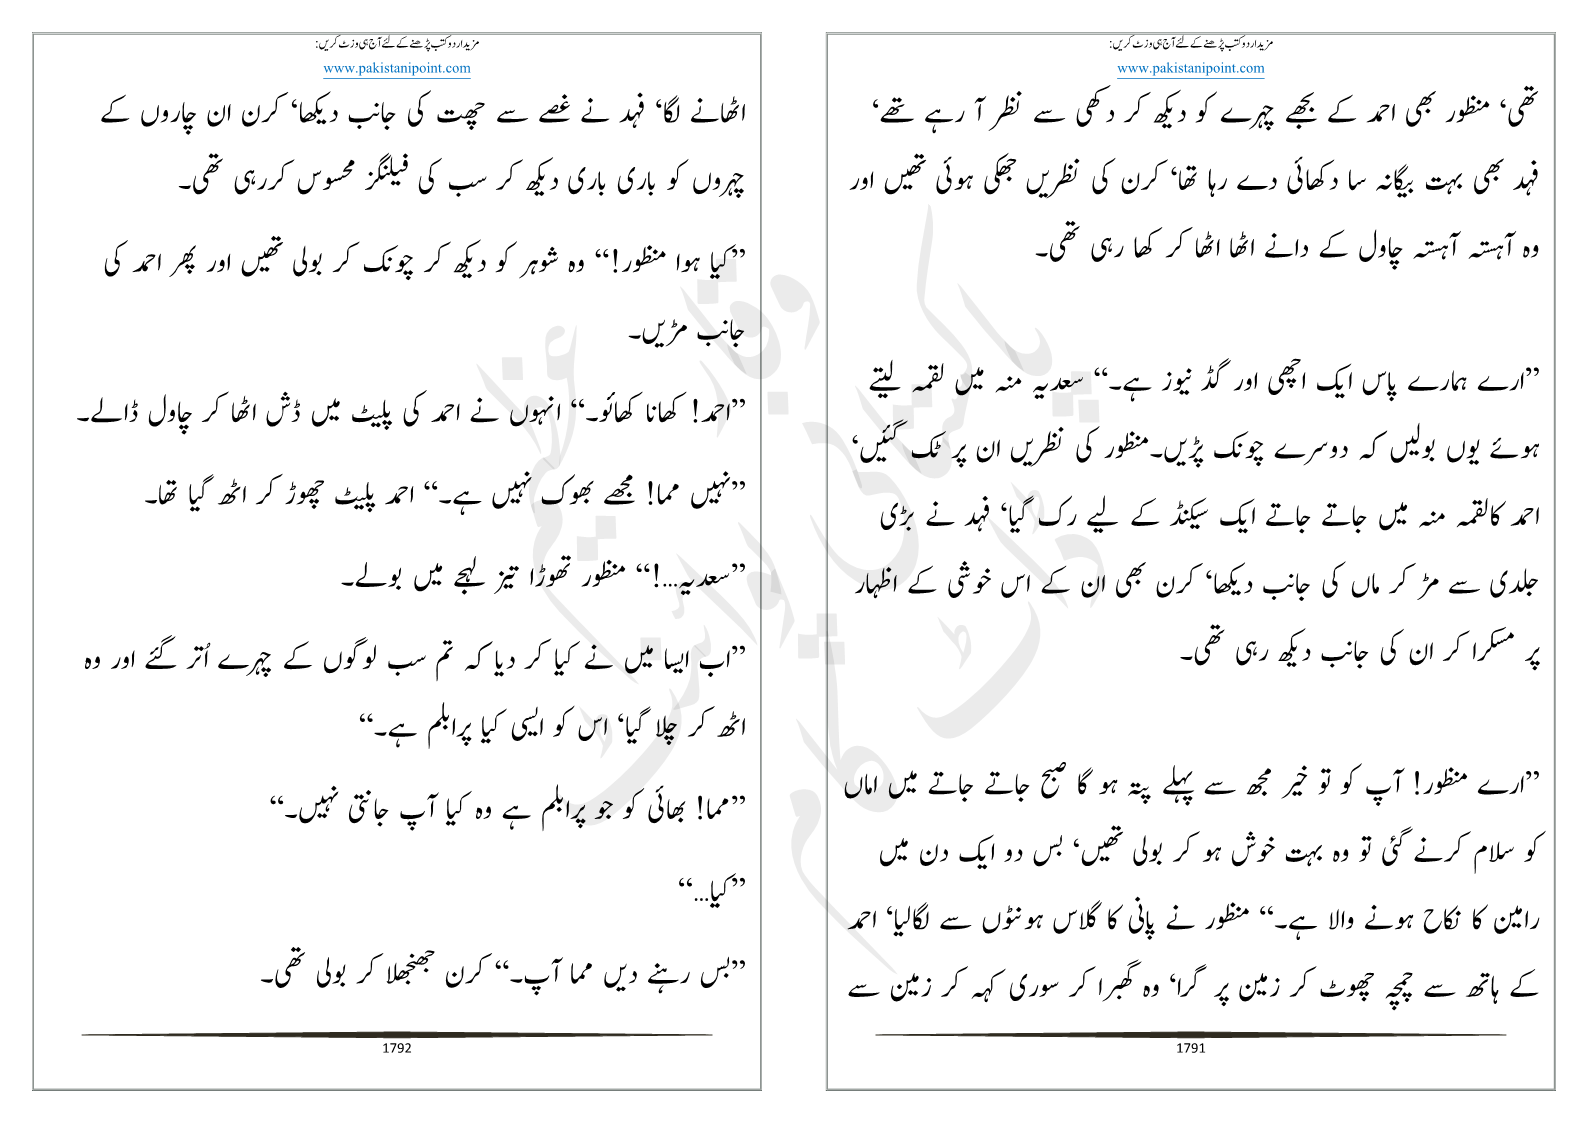 مزید اردو کتب پڑھنے کے لئے آج ہی وزٹ کریں:
www.pakistanipoint.com
تھی، منظور بھی احمد کے بجھے چہرے کو دیکھ کر دکھی سے نظر آ رہے تھے،
فہد بھی بہت بیگانہ سا دکھائی دے رہا تھا، کرن کی نظریں جھکی ہوئی تھیں اور
وہ آہستہ آہستہ چاول کے دانے اٹھا اٹھا کر کھا رہی تھی۔
”ارے ہمارے پاس ایک اچھی اور گڈ نیوز ہے۔“ سعدیہ منہ میں لقمہ لیتے
ہوئے یوں بولیں کہ دوسرے چونک پڑیں۔منظور کی نظریں ان پر ٹک گئیں،
احمد کالقمہ منہ میں جاتے جاتے ایک سیکنڈ کے لیے رک گیا، فہد نے بڑی
جلدی سے مڑ کر ماں کی جانب دیکھا، کرن بھی ان کے اس خوشی کے اظہار
پر مسکرا کر ان کی جانب دیکھ رہی تھی۔
”ارے منظور! آپ کو تو خیر مجھ سے پہلے پتہ ہو گا صبح جاتے جاتے میں اماں
کو سلام کرنے گئی تو وہ بہت خوش ہو کر بولی تھیں، بس دو ایک دن میں
رامین کا نکاح ہونے والا ہے۔“ منظور نے پانی کا گلاس ہونٹوں سے لگالیا، احمد
کے ہاتھ سے چمچہ چھوٹ کر زمین پر گرا، وہ گھبرا کر سوری کہہ کر زمین سے
1791
مزید اردو کتب پڑھنے کے لئے آج ہی وزٹ کریں:
www.pakistanipoint.com
اٹھانے لگا، فہد نے غصے سے چھت کی جانب دیکھا، کرن ان چاروں کے
چہروں کو باری باری دیکھ کر سب کی فیلنگز محسوس کررہی تھی۔
”کیا ہوا منظور!“ وہ شوہر کو دیکھ کر چونک کر بولی تھیں اور پھر احمد کی
جانب مڑیں۔
”احمد! کھانا کھائو۔“ انہوں نے احمد کی پلیٹ میں ڈش اٹھا کر چاول ڈالے۔
”نہیں مما! مجھے بھوک نہیں ہے۔“ احمد پلیٹ چھوڑ کر اٹھ گیا تھا۔
”سعدیہ...!“ منظور تھوڑا تیز لہجے میں بولے۔
”اب ایسا میں نے کیا کر دیا کہ تم سب لوگوں کے چہرے اُتر گئے اور وہ
اٹھ کر چلا گیا، اس کو ایسی کیا پرابلم ہے۔“
”مما! بھائی کو جو پرابلم ہے وہ کیا آپ جانتی نہیں۔“
”کیا...“
”بس رہنے دیں مما آپ۔“ کرن جھنجھلا کر بولی تھی۔
1792
پاکستانی پوائنٹ ڈاٹ کام
وقار عظیم